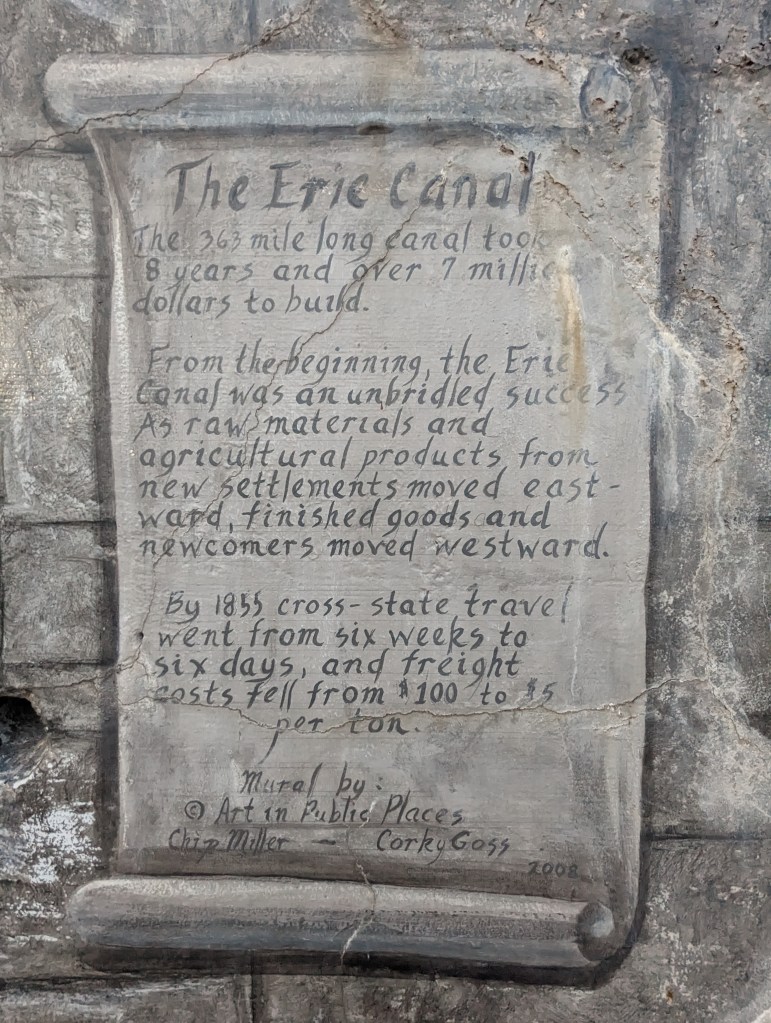 The Erie Canal
The 363 mile long canal took
8 years and over 7 millio
dollars to build.
From the beginning, the Erie
Canal was an unbridled success
As raw materials and
agricultural products from
new settlements moved east-
ward, finished goods and
newcomers moved westward.
By 1855 cross-state travel
went from six weeks to
six days, and freight
costs fell from $100 to $5
per ton.
Mural by:
© Art in Public Places
Chip Miller — Corky Goss
2008